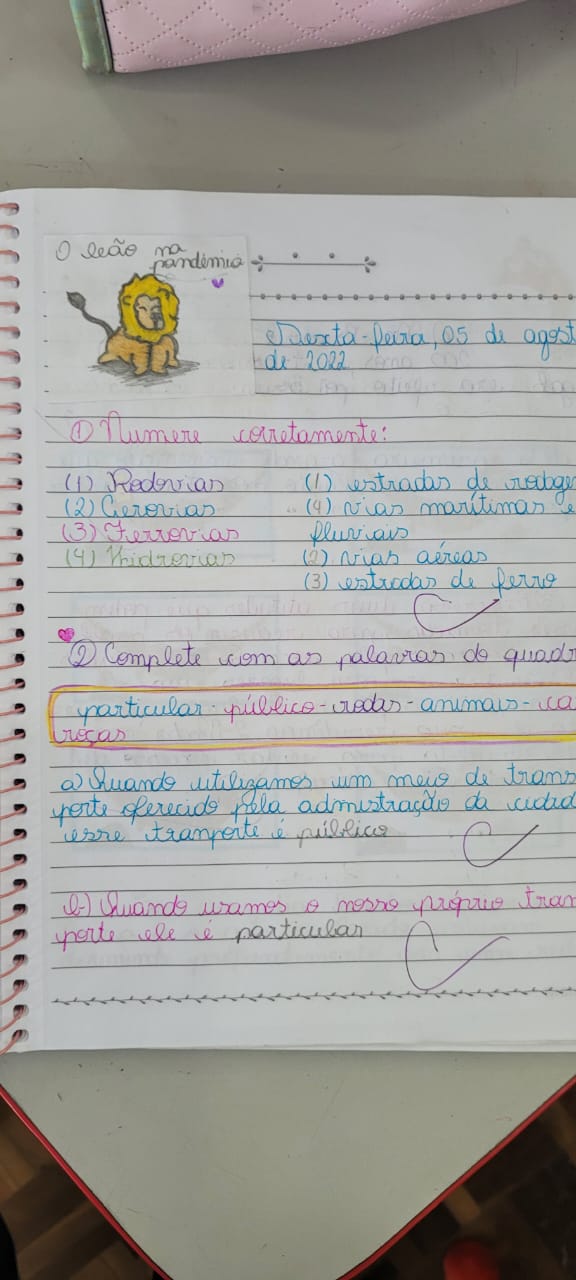 O leão na
pandêmia
Sexta-feira, 05 de agost
de 2022
① Numere corretamente:
(1) Rodovias
(2) Aerovias
(3) Ferrovias
(4) Hidrovias
(1) estradas de rodage
(4) vias marítimas e
fluviais
(2) vias aéreas
(3) estradas de ferro
② Complete com as palavras do quadr
particular - público - rodas - animais - ca
rroças
a) Quando utilizamos um meio de trans
porte oferecido pela admnistração da cidad
esse tranporte é público
b) Quando usamos o nosso próprio tran
porte ele é particular